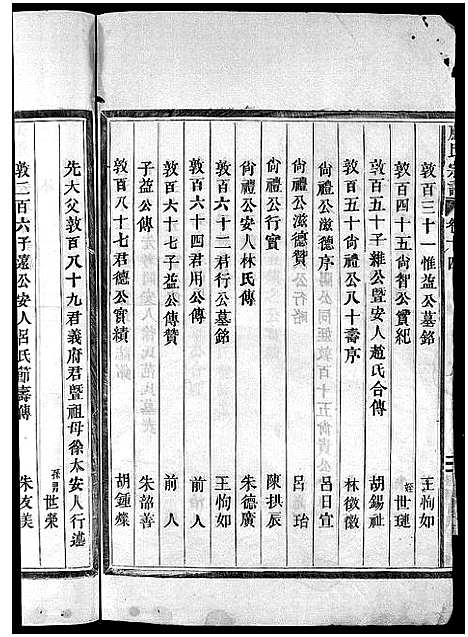 氏宗譜 卷十四
敦百三十一惟益公墓銘 王恂如
敦百四十五尙智公實紀 姪世璉
敦百五十子雜公暨安人趙氏合傳 胡錫祉
敦百五十五尙禮公八十壽序 林徵徽
尙禮公滋德序 呂日宣
尙禮公滋德贊 呂 珆
尙禮公行實 陳拱辰
尙禮公安人林氏傳 朱德廣
敦百六十二君行公墓銘 王恂如
敦百六十四君用公傳 前人
敦百六十七子益公傳贊 前人
子益公傳 朱韶善
敦百八十七君德公實績 胡鍾爍
先大父敦百八十九君義府君暨祖母徐太安人行述 孫男世榮
敦二百六子遠公安人呂氏節壽傳 朱友美